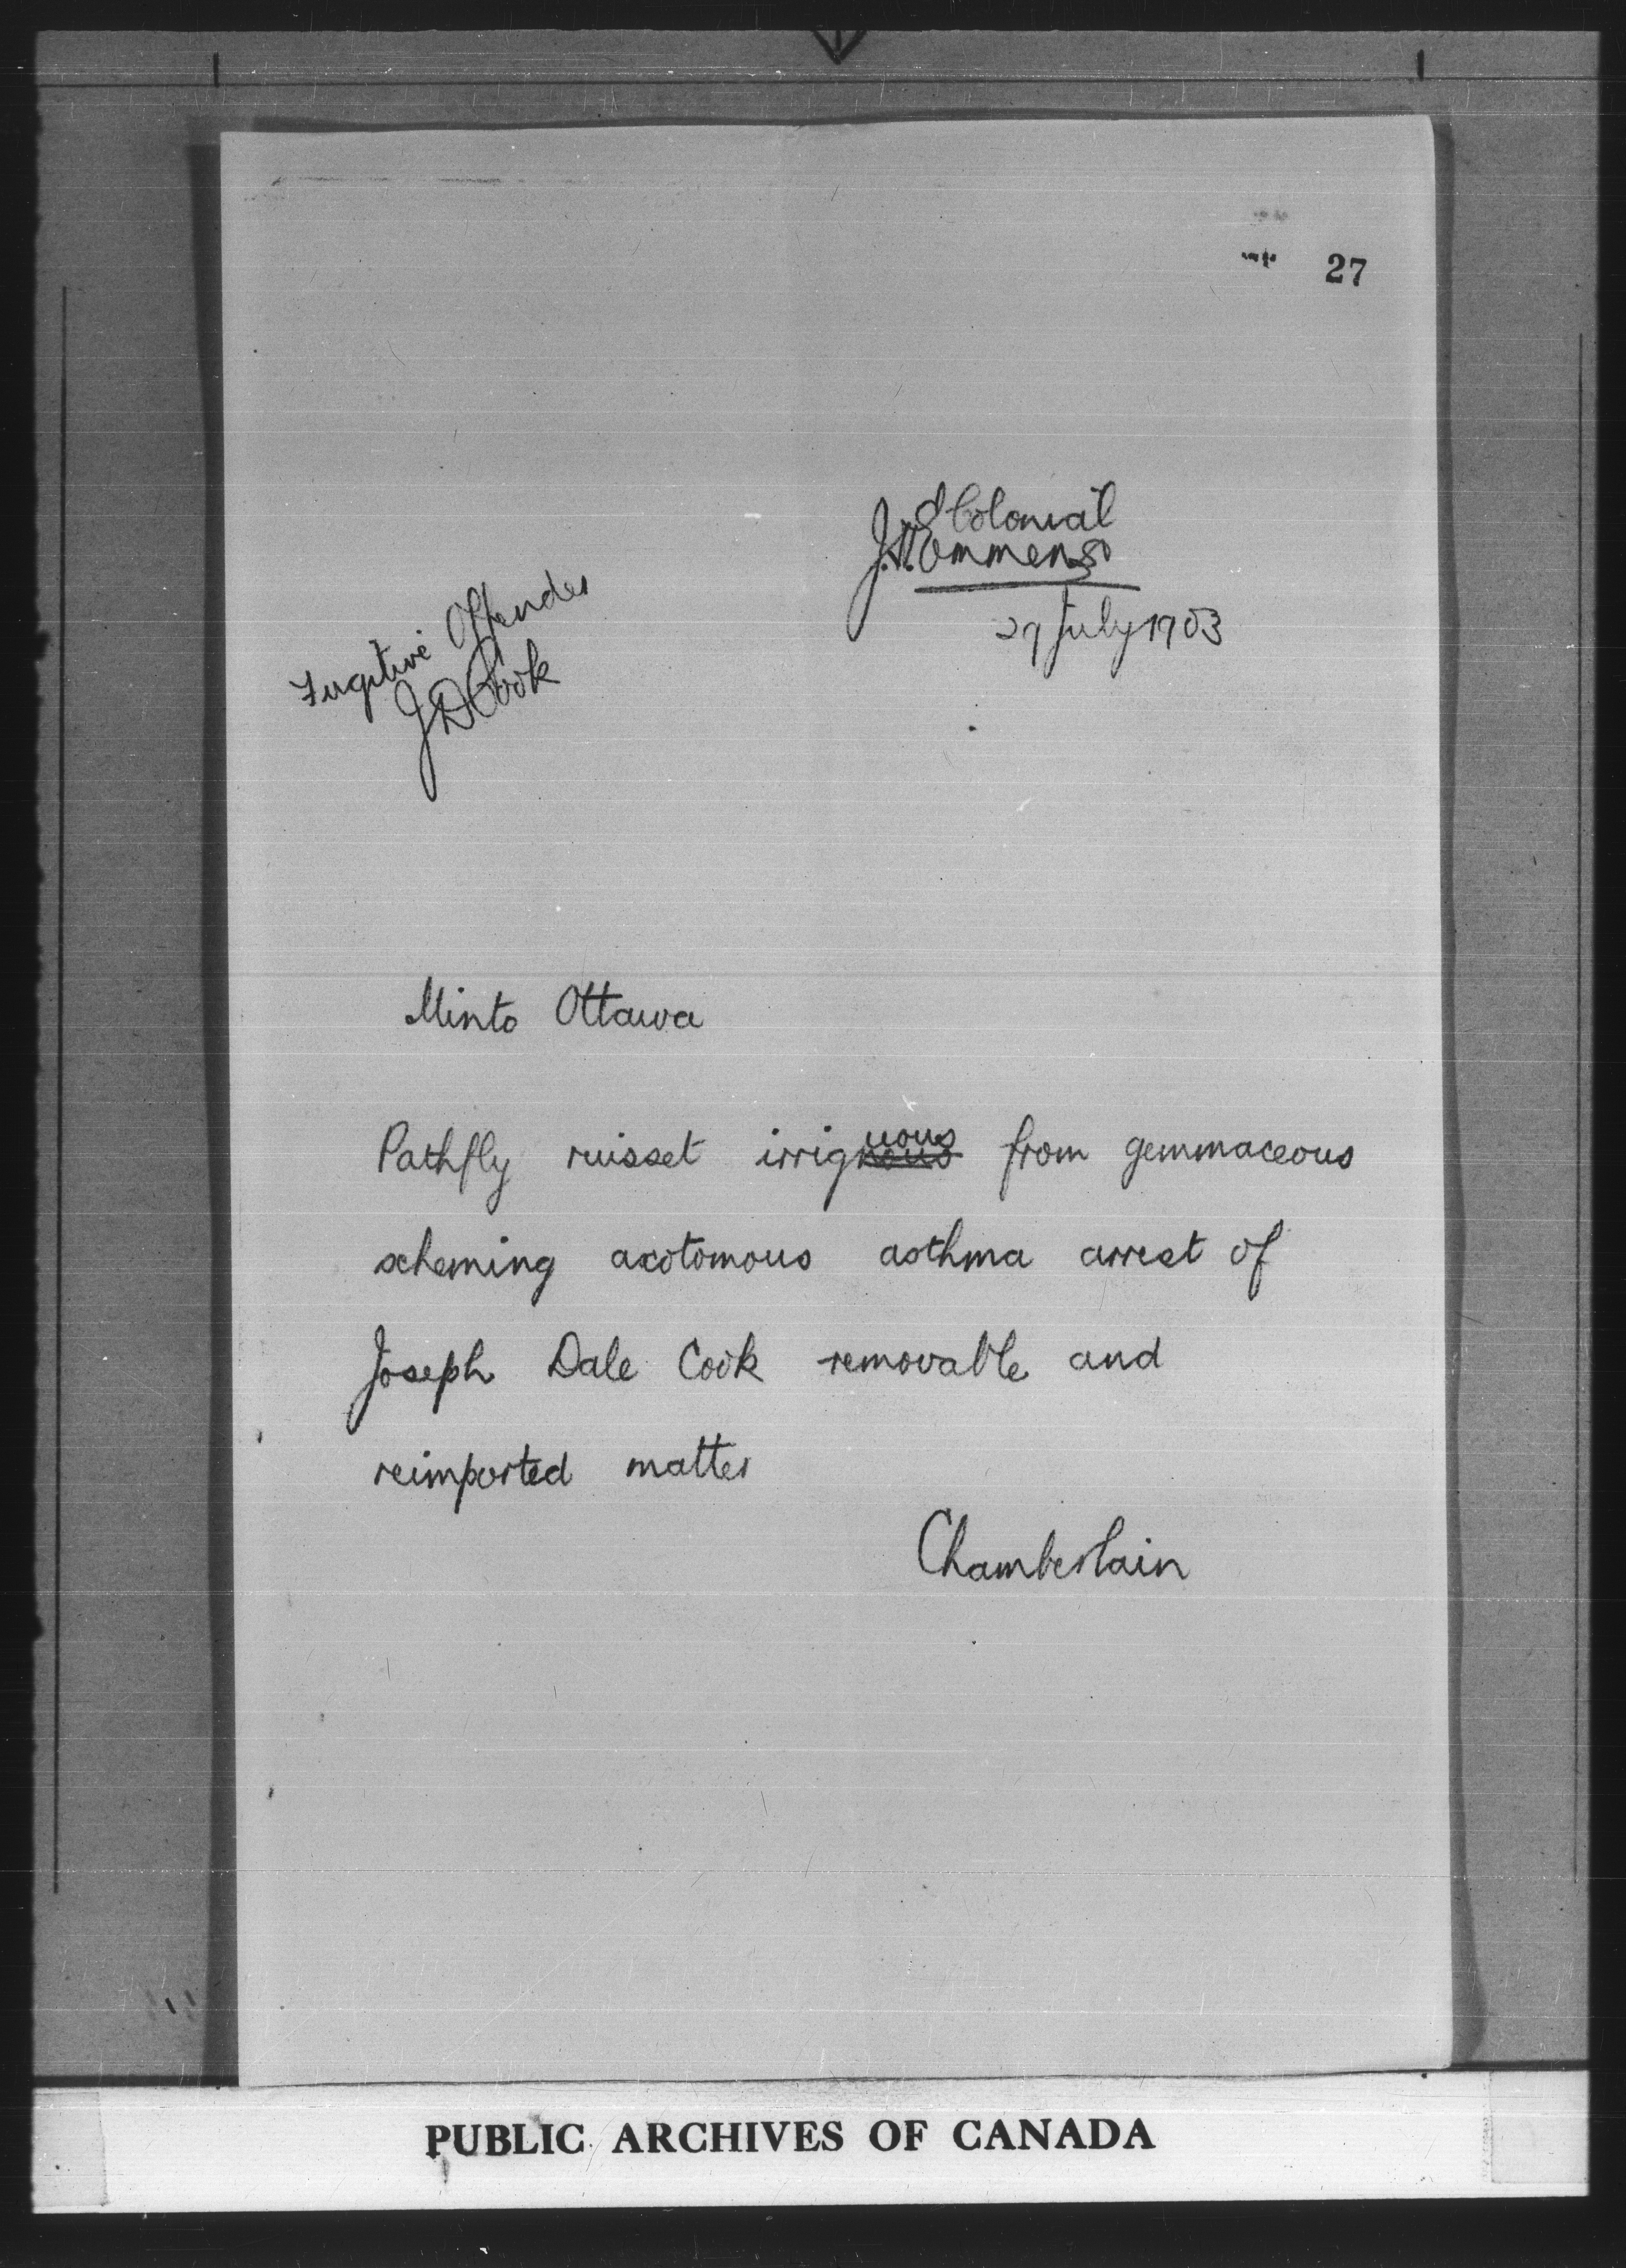 27
Colonial
J.W. Emmens
29 July 1903
Fugitive Offender
J D Cook
Minto Ottawa
Pathfly russet irrignous uous from gemmaceous
scheming axotomous asthma arrest of
Joseph Dale Cook removable and
reimported matter
Chamberlain
PUBLIC ARCHIVES OF CANADA